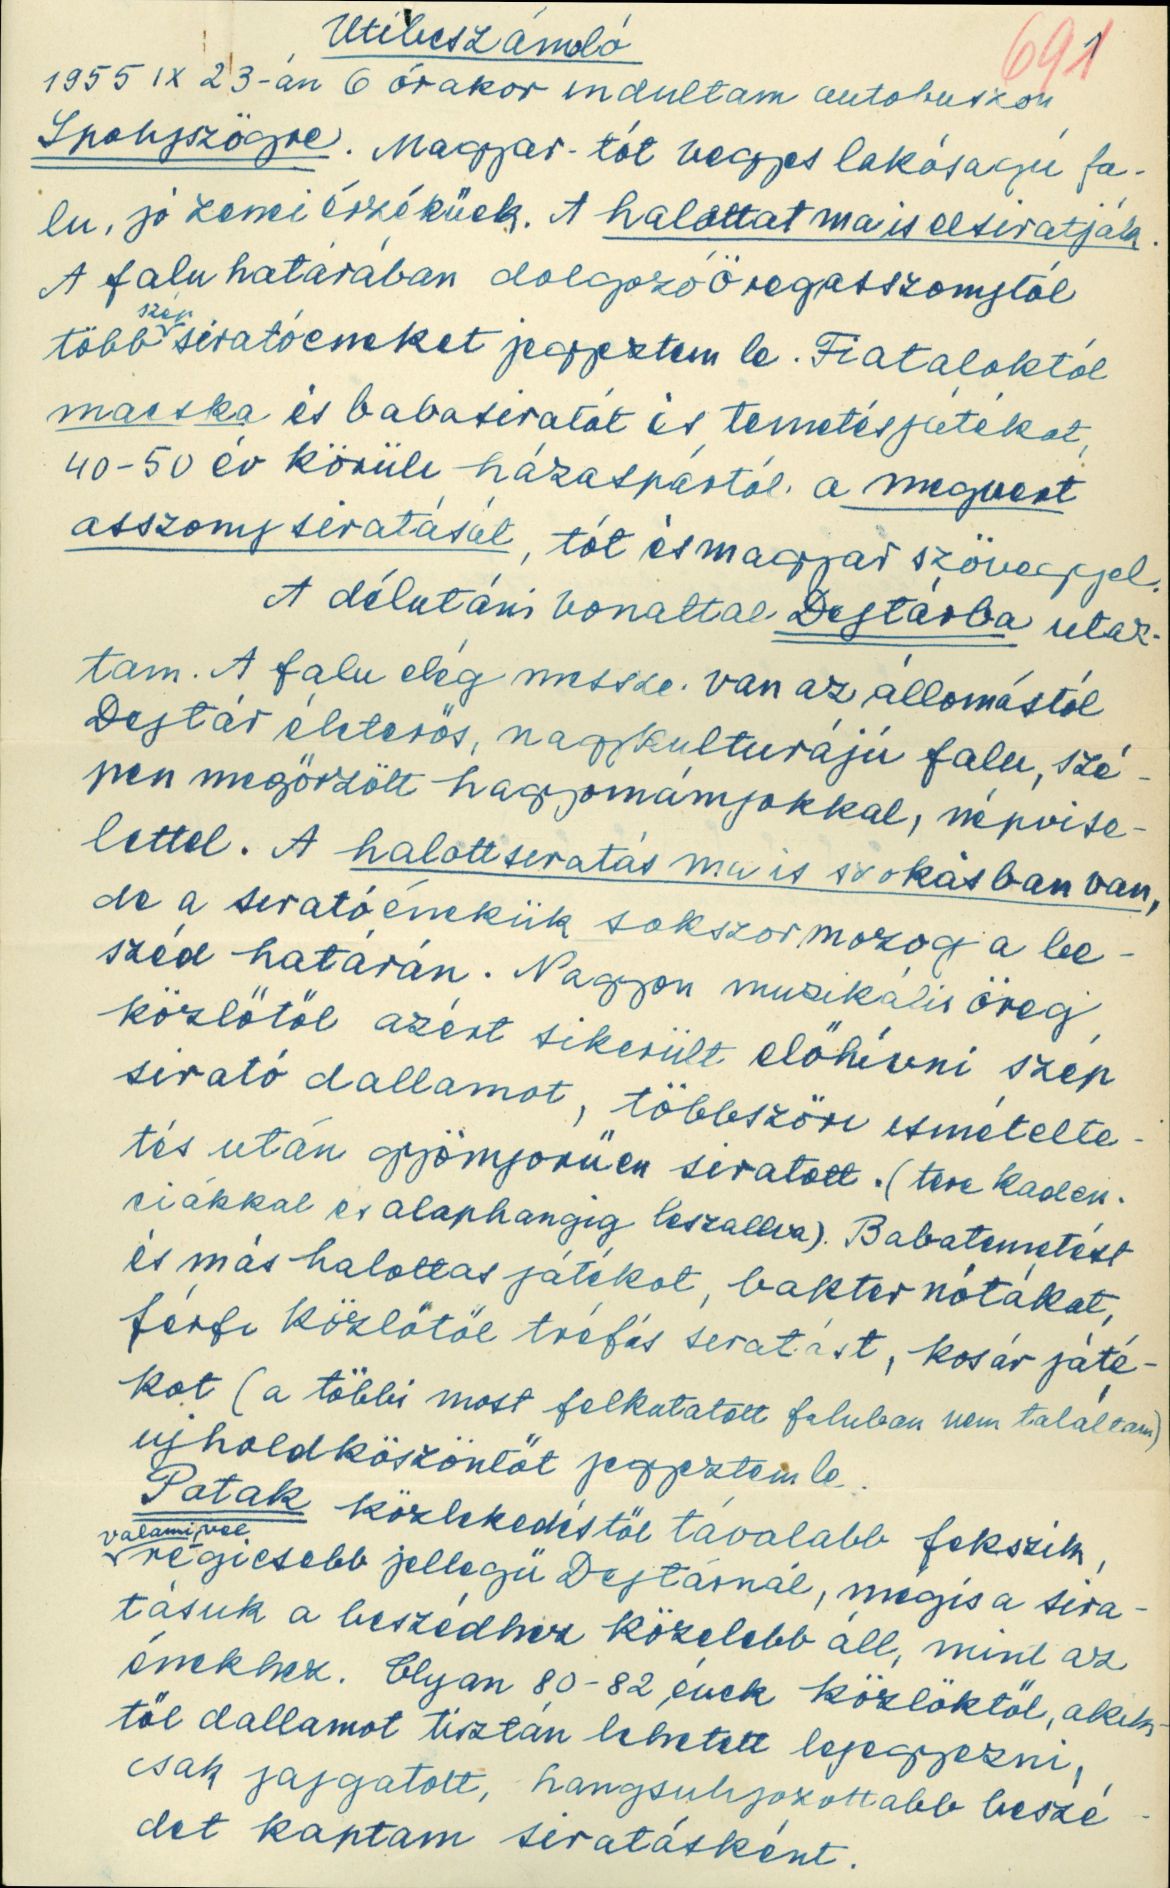 Utibeszámoló
691
1
1955 IX 23-án 6 órakor indultam autobuszon
Ipolyszögre. Magyar-tót vegyes lakóságú fa-
lu, jó zenei érzékűek. A halottat ma is elsiratják.
A falu határában dolgozó öregasszonytól
több szép siratóéneket jegyeztem le. Fiataloktól
macska és babasiratót és temetésjátékot,
40-50 év körüli házaspártól a megvert
asszony siratását, tót és magyar szöveggel.
A délutáni vonattal Dejtárba utaz-
tam. A falu elég messze van az állomástól
Dejtár életerős, nagykulturájú falu, szé-
pen megőrzött hagyományokkal, népvise-
lettel. A halottsiratás ma is szokásban van,
de a siratóénekük sokszor mozog a be-
széd határán. Nagyon muzikális öreg
közlőtől azért sikerült előhívni szép
sirató dallamot, többszöri ismételte-
tés után gyönyörűen siratott. (terc kaden-
ciákkal és alaphangig leszállva). Babatemetést
és más halottas játékot, bakter nótákat,
férfi közlőtől tréfás siratást, kosár játé-
kot (a többi most felkutatott faluban nem találtam)
ujholdköszöntőt jegyeztem le.
Patak közlekedéstől távolabb fekszik,
valamivel régiesebb jellegű Dejtárnál, mégis a sira-
tásuk a beszédhez közelebb áll, mint az
énekhez. Olyan 80-82 évek közlőktől, akik-
től dallamot tisztán lehetett lejegyezni,
csak jajgatott, hangsulyozottabb beszé-
det kaptam siratásként.